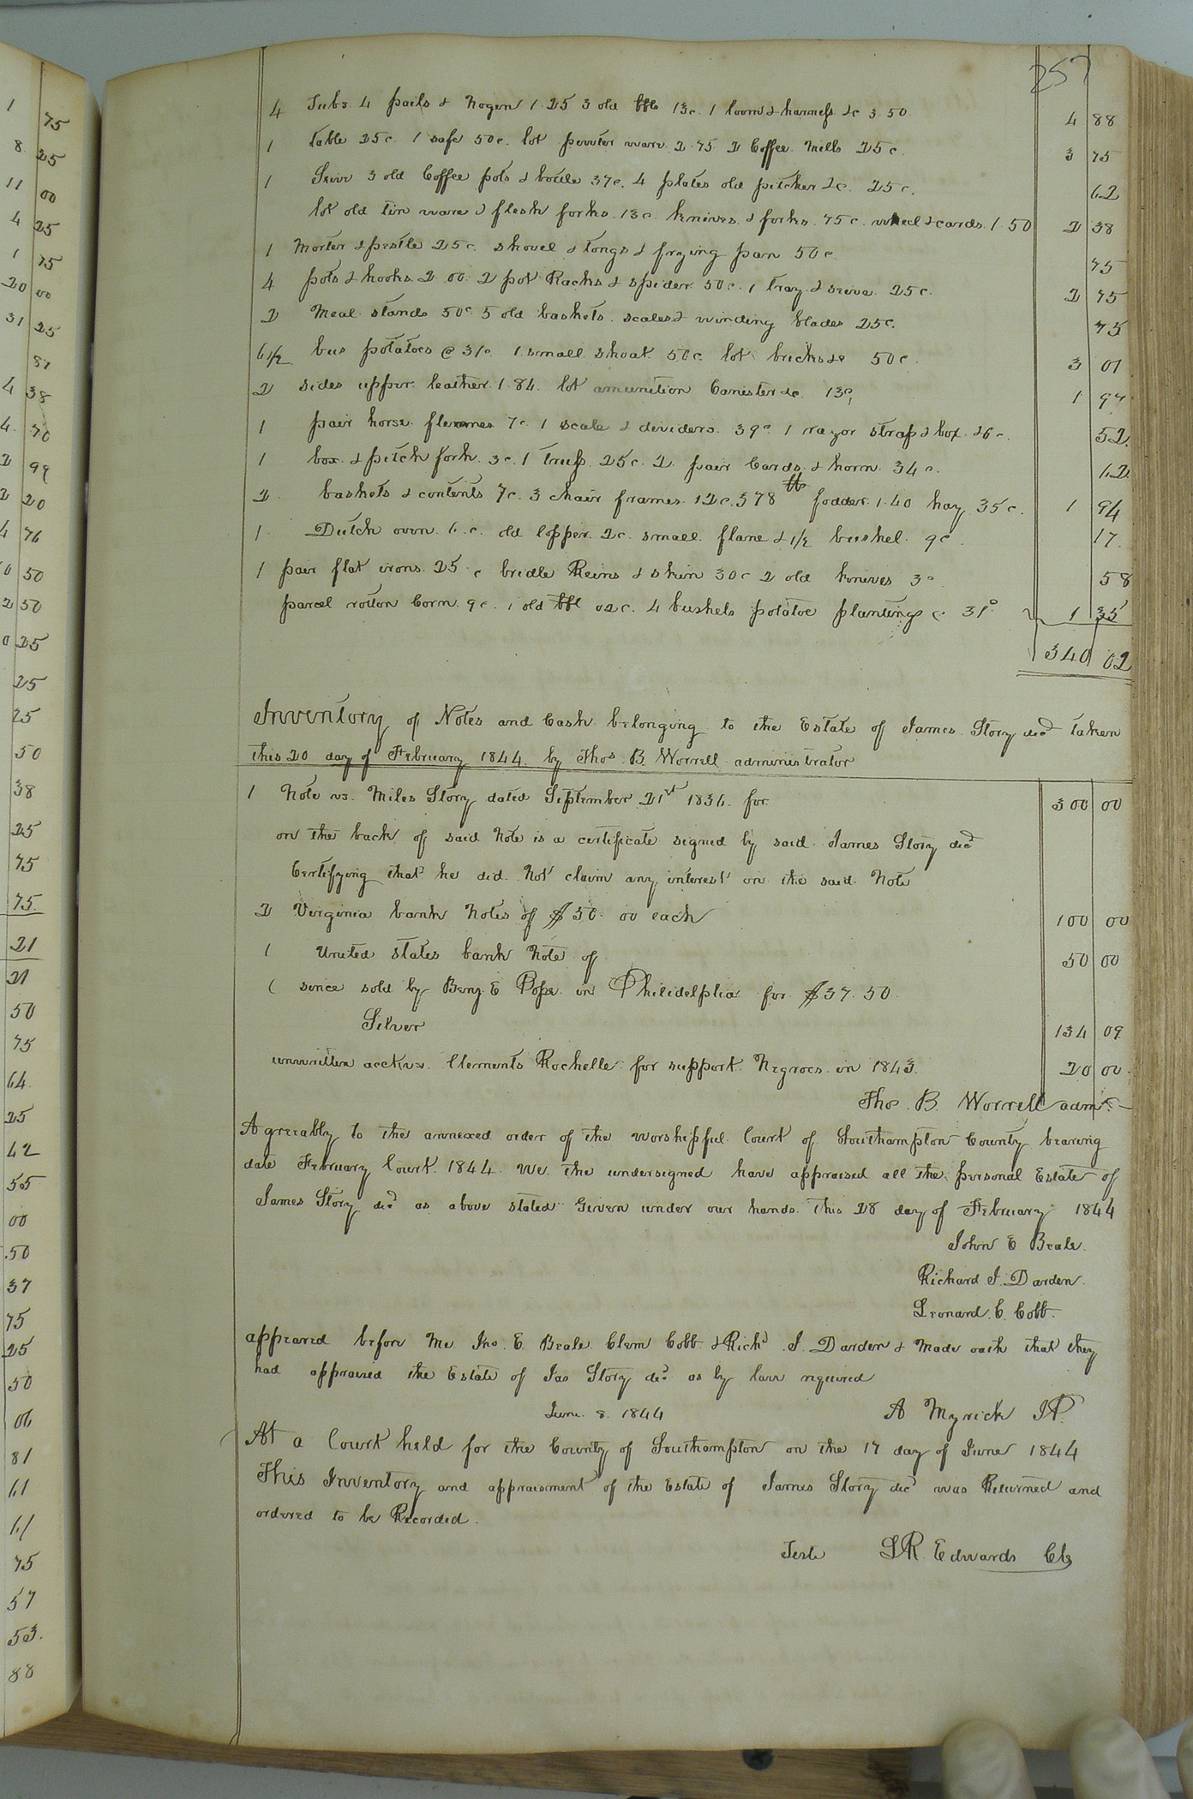 257
4 Tubs 4 pails & Nogen 1.25 3 old bbls 13c. 1 loom & harness &c 3.50 4 88
1 table 25c. 1 safe 50c. lot pewter ware 2.75 2 Coffee Mills 25c. 3 75
1 Sieve 3 old Coffee pots & bottle 37c. 4 plates old pitcher &c. 25c. 62
lot old tin ware & flesh forks 13c knives & forks 75c. wheel & cards 1.50 2 38
1 Morter & pestle 25c. shovel & tongs & frying pan 50c 75
4 pots & hooks 2.00. 2 pot Racks & spider 50c. 1 tray & sieve 25c. 2 75
2 Meal stands 50c 5 old baskets scales & winding blades 25c. 75
6 1/2 bus potatoes @ 31c 1 small shoat 50c lot bricks &c 50c. 3 01
2 sides upper leather 1.84. lot amunition Canister &c. 13c, 1 97
1 pair horse flemes 7c. 1 scale & dividers 39c 1 razor strap & box &6c. 52.
1 box & pitch fork 3c. 1 truss 25c. 2 pair Cards & horn 34c. 62
2 baskets & contents 7c. 3 chair frames 12c. 378 lb fodder 1.40 hay 35c. 1 94
1 Dutch oven 6c. old lopper 2c. small plane & 1/2 bushel 9c 17.
1 pair flat irons 25c bridle Reins & skin 30c 2 old knives 3c 58
parcel rotton Corn 9c. 1 old bbl 02c. 4 bushels potatoe plantings @ 31c 1 35
340 02
Inventory of Notes and Cash belonging to the Estate of James Story decd taken
this 20 day of February 1844 by Thos. B. Worrell administrator
1 Note vs. Miles Story dated September 21st 1836 for 300 00
on the back of said Note is a certificate signed by said James Story decd
Certifying that he did Not claim any interest on the said Note
2 Virginia bank Notes of $50.00 each 100 00
1 United states bank Note of 50 00
( since sold by Benj. E Pope in Philidelphia for $37.50
Silver 134 09
unwritten acct vs. Clements Rochelle for support Negroes in 1843. 20 00
Thos. B. Worrell admr.
Agreeably to the annexed order of the Worshipful Court of Southampton County bearing
date February Court 1844 We the undersigned have appraised all the personal Estate of
James Story decd as above stated Given under our hands this 28 day of February 1844
John E Beale.
Richard J. Darden.
Leonard C. Cobb.
appeared before Me Jno. E. Beale Clem Cobb & Richd J. Darden & Made oath that they
had appraised the Estate of Jas Story decd as by law required
June 8. 1844 A Myrick JP.
At a Court held for the County of Southampton on the 17 day of June 1844
This Inventory and appraisement of the Estate of James Story decd was Returned and
ordered to be Recorded.
Teste L R. Edwards Clk